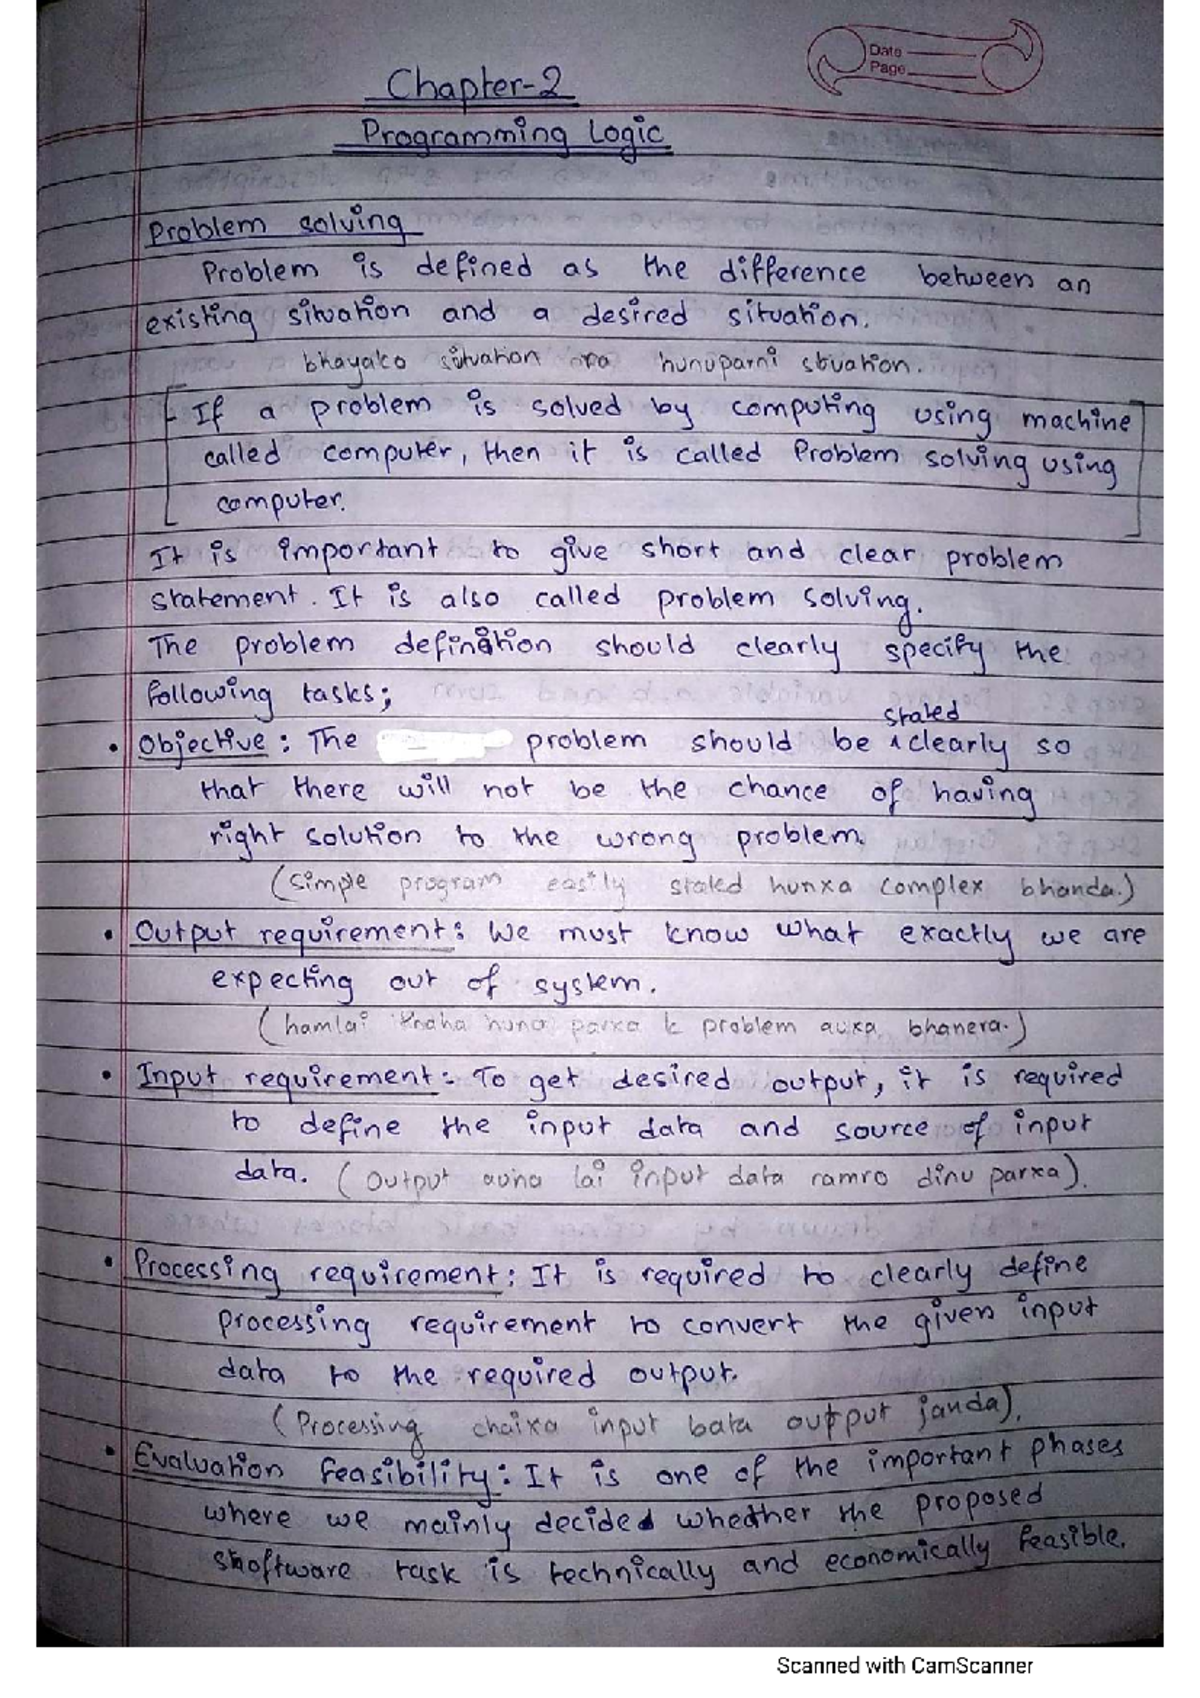 Date
Page
Chapter-2
Programming Logic
Problem solving
Problem is defined as the difference between an
existing situation and a desired situation.
bhayako situation ra hunuparni situation.
If a problem is solved by computing using machine
called computer, then it is called Problem solving using
computer.
It is important to give short and clear problem
statement. It is also called problem solving.
The problem definition should clearly specify the
following tasks;
stated
• Objective : The problem should be ^ clearly so
that there will not be the chance of having
right solution to the wrong problem.
(simple program easily stated hunxa complex bhanda.)
• Output requirement: We must know what exactly we are
expecting out of system.
(hamlai thaha huna parxa k problem auxa bhanera.)
• Input requirement:- To get desired output, it is required
to define the input data and source of input
data. (Output auna lai input data ramro dinu parxa).
• Processing requirement: It is required to clearly define
processing requirement to convert the given input
data to the required output.
(Processing chaixa input bata output janda).
• Evaluation feasibility: It is one of the important phases
where we mainly decided whether the proposed
software task is technically and economically feasible.
Scanned with CamScanner